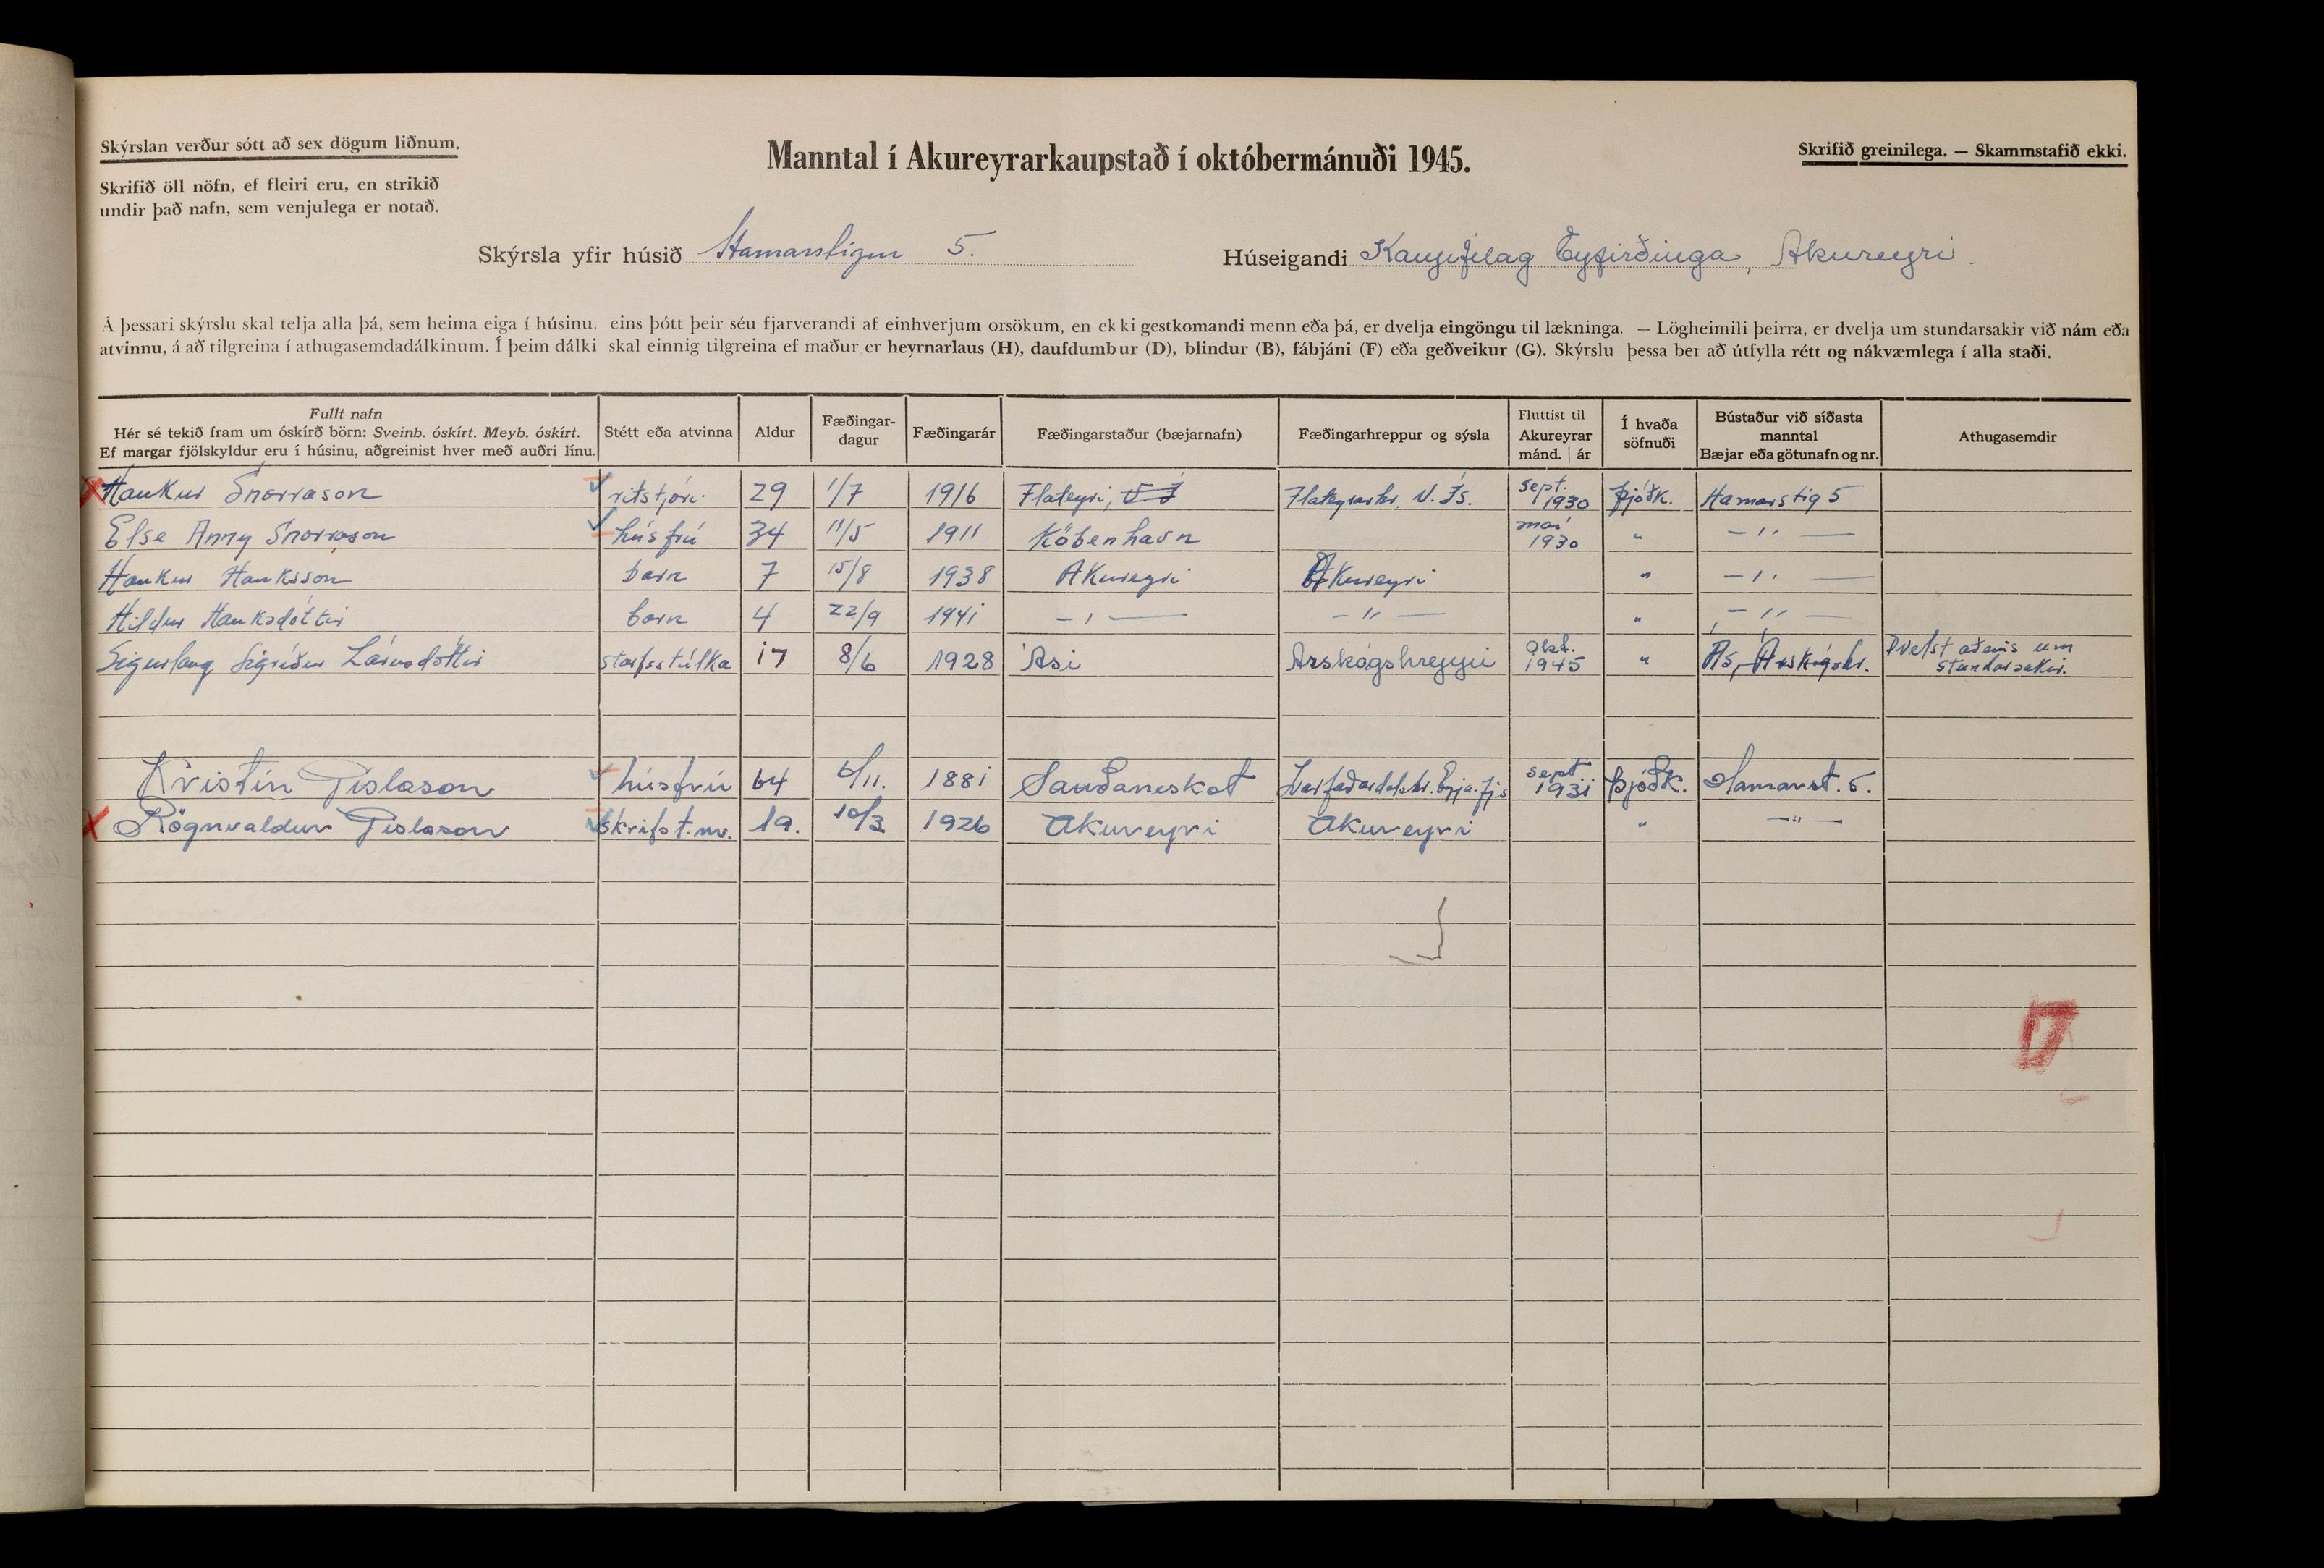 Skýrslan verður sótt að sex dögum liðnum.
Skrifið öll nöfn, ef fleiri eru, en strikið
undir það nafn, sem venjulega er notað.
Manntal í Akureyrarkaupstað í októbermánuði 1945.
Skrifið greinilega. — Skammstafið ekki.
Skýrsla yfir húsið Hamarstígur 5.
Húseigandi Kaupfélag Eyfirðinga, Akureyri.
Á þessari skýrslu skal telja alla þá, sem heima eiga í húsinu, eins þótt þeir séu fjarverandi af einhverjum orsökum, en ekki gestkomandi menn eða þá, er dvelja eingöngu til lækninga. — Lögheimili þeirra, er dvelja um stundarsakir við nám eða
atvinnu, á að tilgreina í athugasemdadálkinum. Í þeim dálki skal einnig tilgreina ef maður er heyrnarlaus (H), daufdumbur (D), blindur (B), fábjáni (F) eða geðveikur (G). Skýrslu þessa ber að útfylla rétt og nákvæmlega í alla staði.
Fullt nafn
Hér sé tekið fram um óskírð börn: Sveinb. óskírt. Meyb. óskírt.
Ef margar fjölskyldur eru í húsinu, aðgreinist hver með auðri línu.
Stétt eða atvinna
Aldur
Fæðingar-
dagur
Fæðingarár
Fæðingarstaður (bæjarnafn)
Fæðingarhreppur og sýsla
Fluttist til
Akureyrar
mánd. | ár
Í hvaða
söfnuði
Bústaður við síðasta
manntal
Bæjar eða götunafn og nr.
Athugasemdir
Haukur Snorrason ritstjóri. 29 1/7 1916 Flateyri, Flateyrarhr. V. Ís. sept. 1930 þjóðk. Hamarstíg 5
Else Anny Snorrason húsfrú 34 11/5 1911 Köbenhavn maí 1930 " — " —
Haukur Hauksson barn 7 15/8 1938 Akureyri Akureyri " — " —
Hildur Hauksdóttir barn 4 22/9 1941 — " — — " — " — " —
Sigurlaug Sigríður Lárusdóttir starfsstúlka 17 8/6 1928 Ási Arskógshreppi Okt. 1945 " Ás, Árskógshr. Dvelst aðeins um
stundarsakir.
Kristín Gíslason húsfrú 64 6/11. 1881 Sauðaneskot Svarfaðardalshr. Eyja.fj.s sept 1931 Þjóðk. Hamarst. 5.
Rögnvaldur Gíslason skrifst.m. 19. 10/3 1926 Akureyri Akureyri " — " —